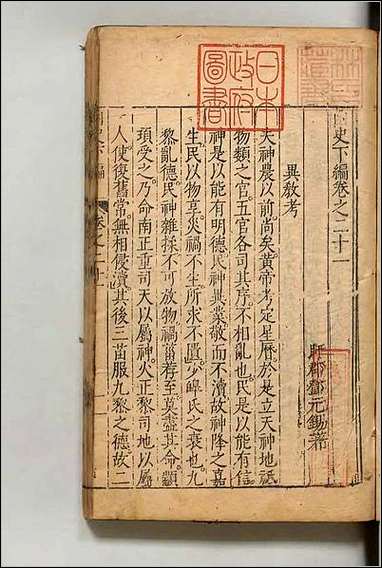 史下編卷之二十一
盱郡鄧元錫著
異教考
夫神農以前尚矣黃帝考定星曆於是立天神地祇
物類之官五官各司其序不相亂也民是以能有信
神是以能有明德民神異業敬而不瀆故神降之嘉
生民以物享災禍不生所求不匱少皥氏之衰也九
黎亂德民神雜揉不可放物禍菑荐至莫盡其命顓
頊受之乃命南正重司天以屬神火正黎司地以屬
人使復舊常無相侵瀆其後三苗服九黎之德故二
日本
政府
圖書